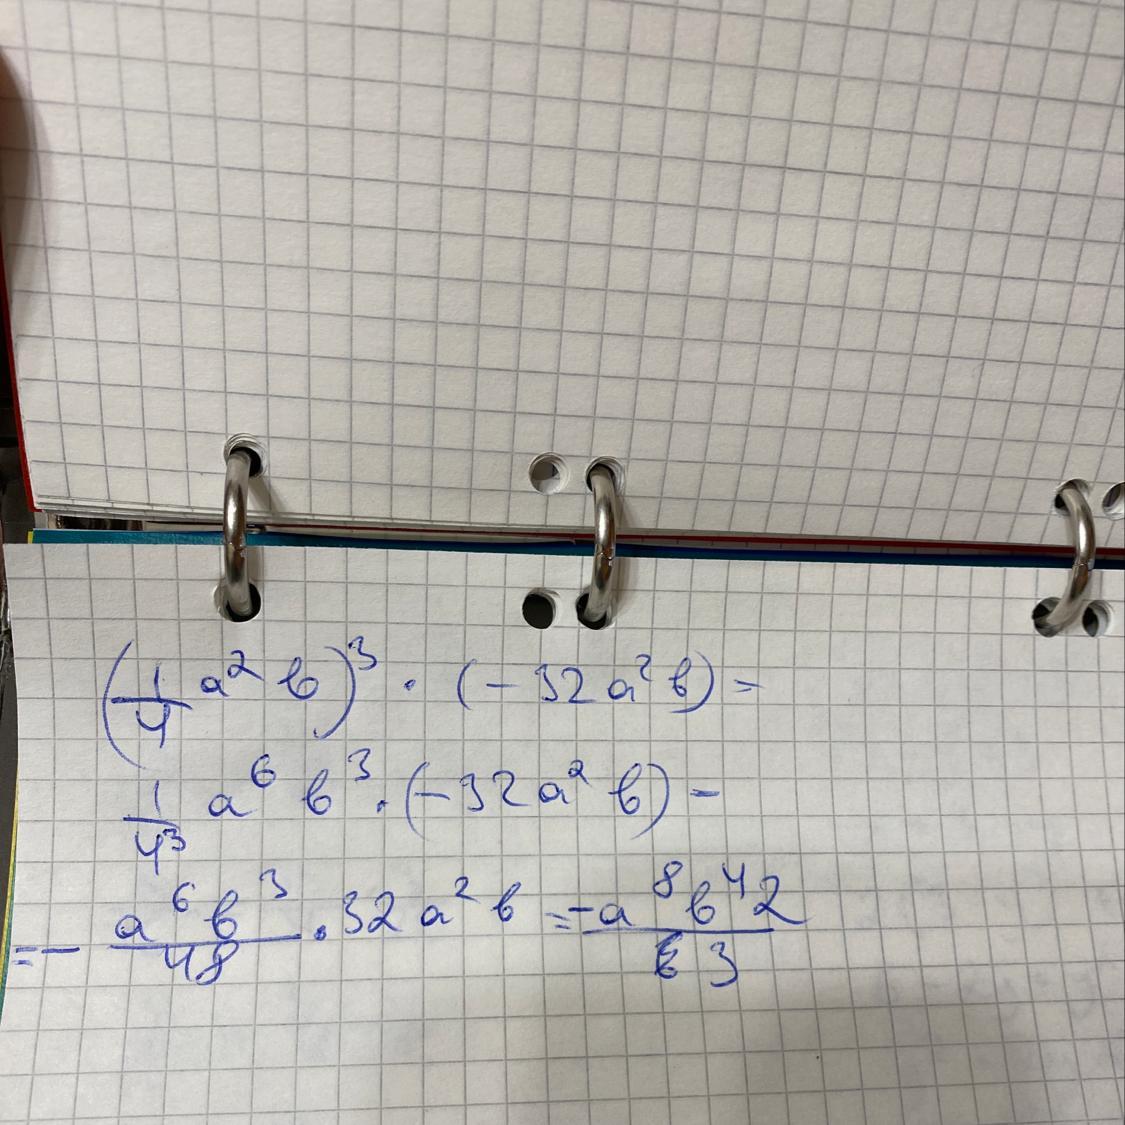 (1/4 a² b)³ · (-32a²b) =
1/4³ a⁶ b³ · (-32a² b) -
= - a⁶b³/48 · 32a² b = -a⁸b⁴2/3